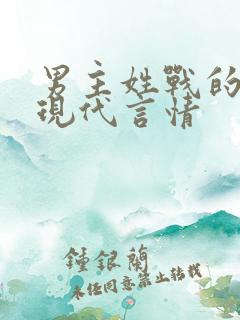 男主姓戰的
現代言情
鍾銀蘭
未任同意禁止轉載